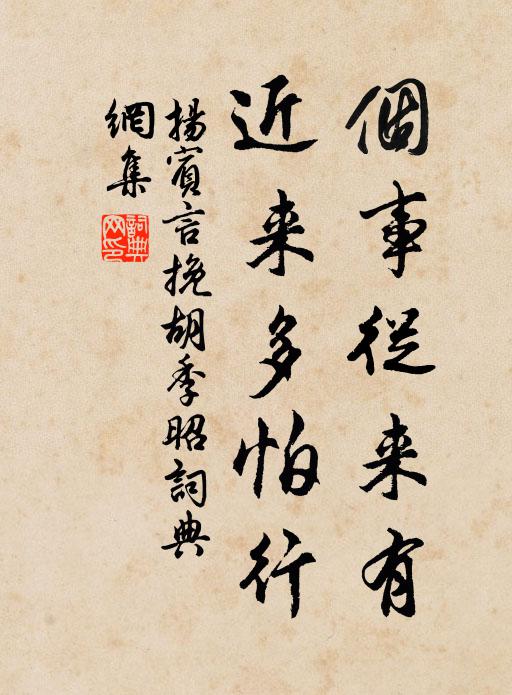 個事從来有
近来多怕行
揚賓言挽胡季昭詞典
網集
詞典
网印